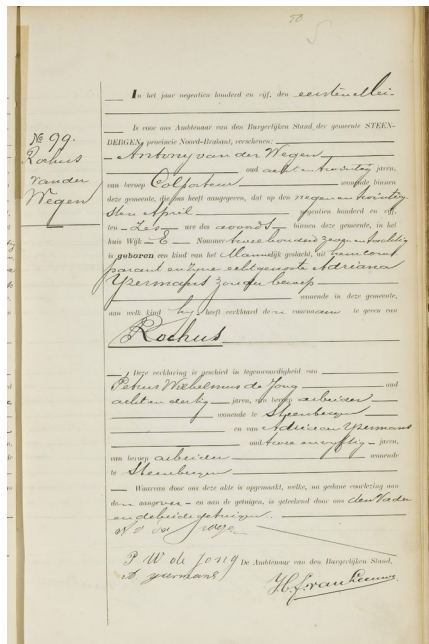 50
In het jaar negentien honderd en vijf, den eersten Mei
Is voor ons Ambtenaar van den Burgerlijken Stand der gemeente STEEN-
BERGEN, provincie Noord-Brabant, verschenen:
No 99.
Rochus
van der
Wegen
Antony van der Wegen
oud acht en twintig jaren,
van beroep Colporteur wonende binnen
deze gemeente, die ons heeft aangegeven, dat op den negen en twintig-
sten April negentien honderd en vijf,
ten zes ure des avonds binnen deze gemeente, in het
huis Wijk E Nummer twee honderd zeven en tachtig
is geboren een kind van het Mannelijk geslacht, uit hem comt
parant en zijne echtgenoote Adriana
Ypermans zonder beroep
wonende in deze gemeente,
aan welk kind hij heeft verklaard den voornaam te geven van
Rochus
Deze verklaring is geschied in tegenwoordigheid van
Petrus Wilhelmus de Jong oud
acht en dertig jaren, van beroep arbeider
wonende te Steenbergen
en van Adriaan Ypermans
oud twee en vyftig jaren,
van beroep arbeider wonende
te Steenbergen
Waarvan door ons deze akte is opgemaakt, welke, na gedane voorlezing aan
den aangever en aan de getuigen, is geteekend door ons den Vader
en de beide getuigen.
P W de Jong De Ambtenaar van den Burgerlijken Stand,
A ypermans